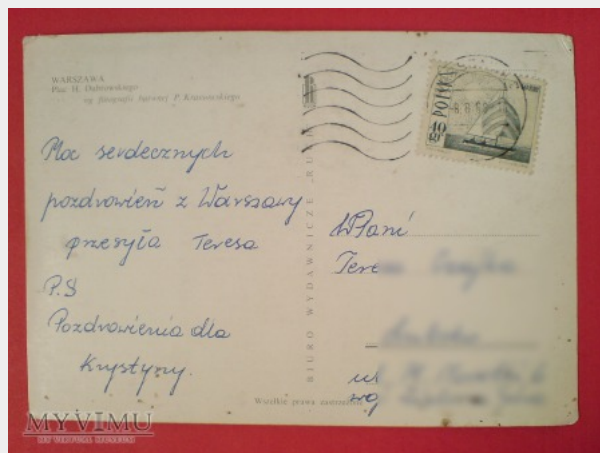 WARSZAWA
Plac H. Dąbrowskiego
wg fotografii barwnej P. Krassowskiego
Moc serdecznych
pozdrowień z Warszawy
przesyła Teresa
P.S
Pozdrowienia dla
Krystyny.
BIURO WYDAWNICZE „RUCH"
POLSKA
W/Pani
Tere
ul
Wszelkie prawa zastrzeżone
MYVIMU
MY VIRTUAL MUSEUM